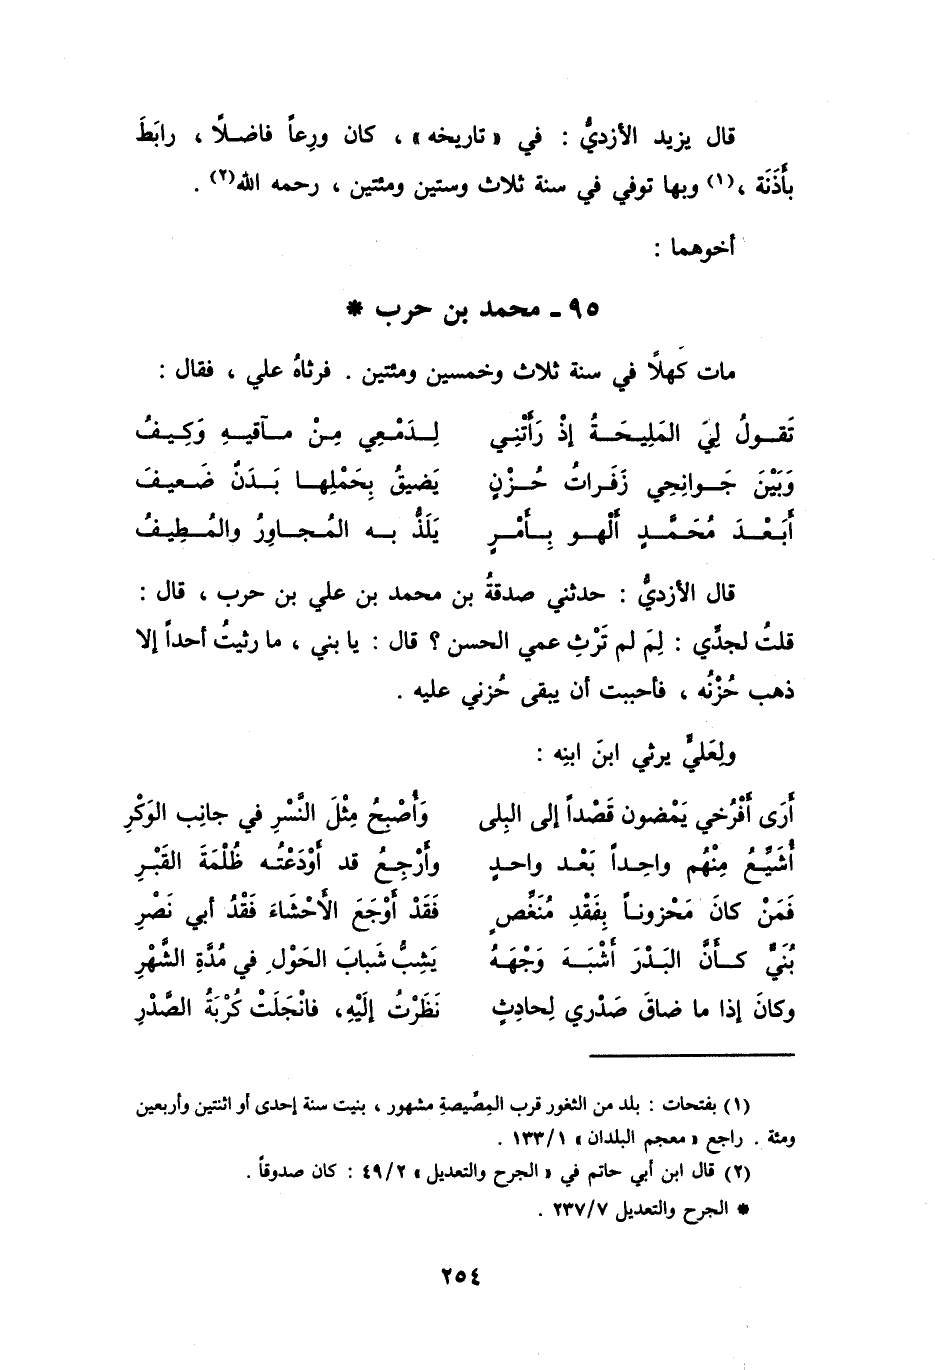 قال يزيد الأزديُّ : في « تاريخه » ، كان ورِعاً فاضـلًا ، رابَطَ
بأَذَنَة ،(١) وبها توفي في سنة ثلاث وستين ومئتين ، رحمه الله(٢) .
أخوهما :
٩٥ ـ محمد بن حرب *
مات كَهلًا في سنة ثلاث وخمسين ومئتين . فرثاهُ علي ، فقال :
تَقـولُ لِيَ المَلِيحَـةُ إذْ رَأَتْنِـي لِـدَمْعِي مِـنْ مـآقيـهِ وَكِيـفُ
وَبَيْنَ جَـوانِحِي زَفَراتُ حُـزْنٍ يَضيقُ بِحَمْلِهـا بَـدَنٌ ضَـعيـفَ
أَبَعْـدَ مُحَمَّـدٍ أَلْهـو بِـأَمْـرٍ يَلَذُّ بـه المُـجـاوِرُ والمُـطِيـفُ
قال الأزديُّ : حدثني صدقةُ بن محمد بن علي بن حرب ، قال :
قلتُ لجدِّي : لِمَ لم تَرْثِ عمي الحسن ؟ قال : يا بني ، ما رثيتُ أحداً إلا
ذهب حُزْنُه ، فأحببت أن يبقى حُزني عليه .
ولِعَليٍّ يرثي ابنَ ابنِه :
أَرَى أَفْرُخي يَمْضون قَصْداً إلى البِلى وَأُصْبِحُ مِثْلَ النَّسْرِ في جانِبِ الوَكْرِ
أُشَيِّعُ مِنْهُم واحِـداً بَعْـد واحـدٍ وأَرْجِـعُ قد أَوْدَعْتُـه ظُلْمَةَ القَبْـرِ
فَمَنْ كانَ مَحْزونـاً بِفَقْدِ مُنَغَّصٍ فَقَدْ أَوْجَعَ الأَحْشَاءَ فَقْدُ أبي نَصْرِ
بُنَيَّ كـأَنَّ البَـدْرَ أَشْبَـهَ وَجْهَـهُ يَشِبُّ شَبابَ الحَوْلِ في مُدَّةِ الشَّهْرِ
وكانَ إذا ما ضاقَ صَدْري لِحادِثٍ نَظَرْتُ إلَيْهِ، فانْجَلَتْ كُرْبَةُ الصَّدْرِ
(١) بفتحات : بلد من الثغور قرب المِصِّيصةِ مشهور ، بنيت سنة إحدى أو اثنتين وأربعين
ومئة . راجع « معجم البلدان » ١٣٣/١ .
(٢) قال ابن أبي حاتم في « الجرح والتعديل » ٤٩/٢ : كان صدوقاً .
* الجرح والتعديل ٢٣٧/٧ .
٢٥٤